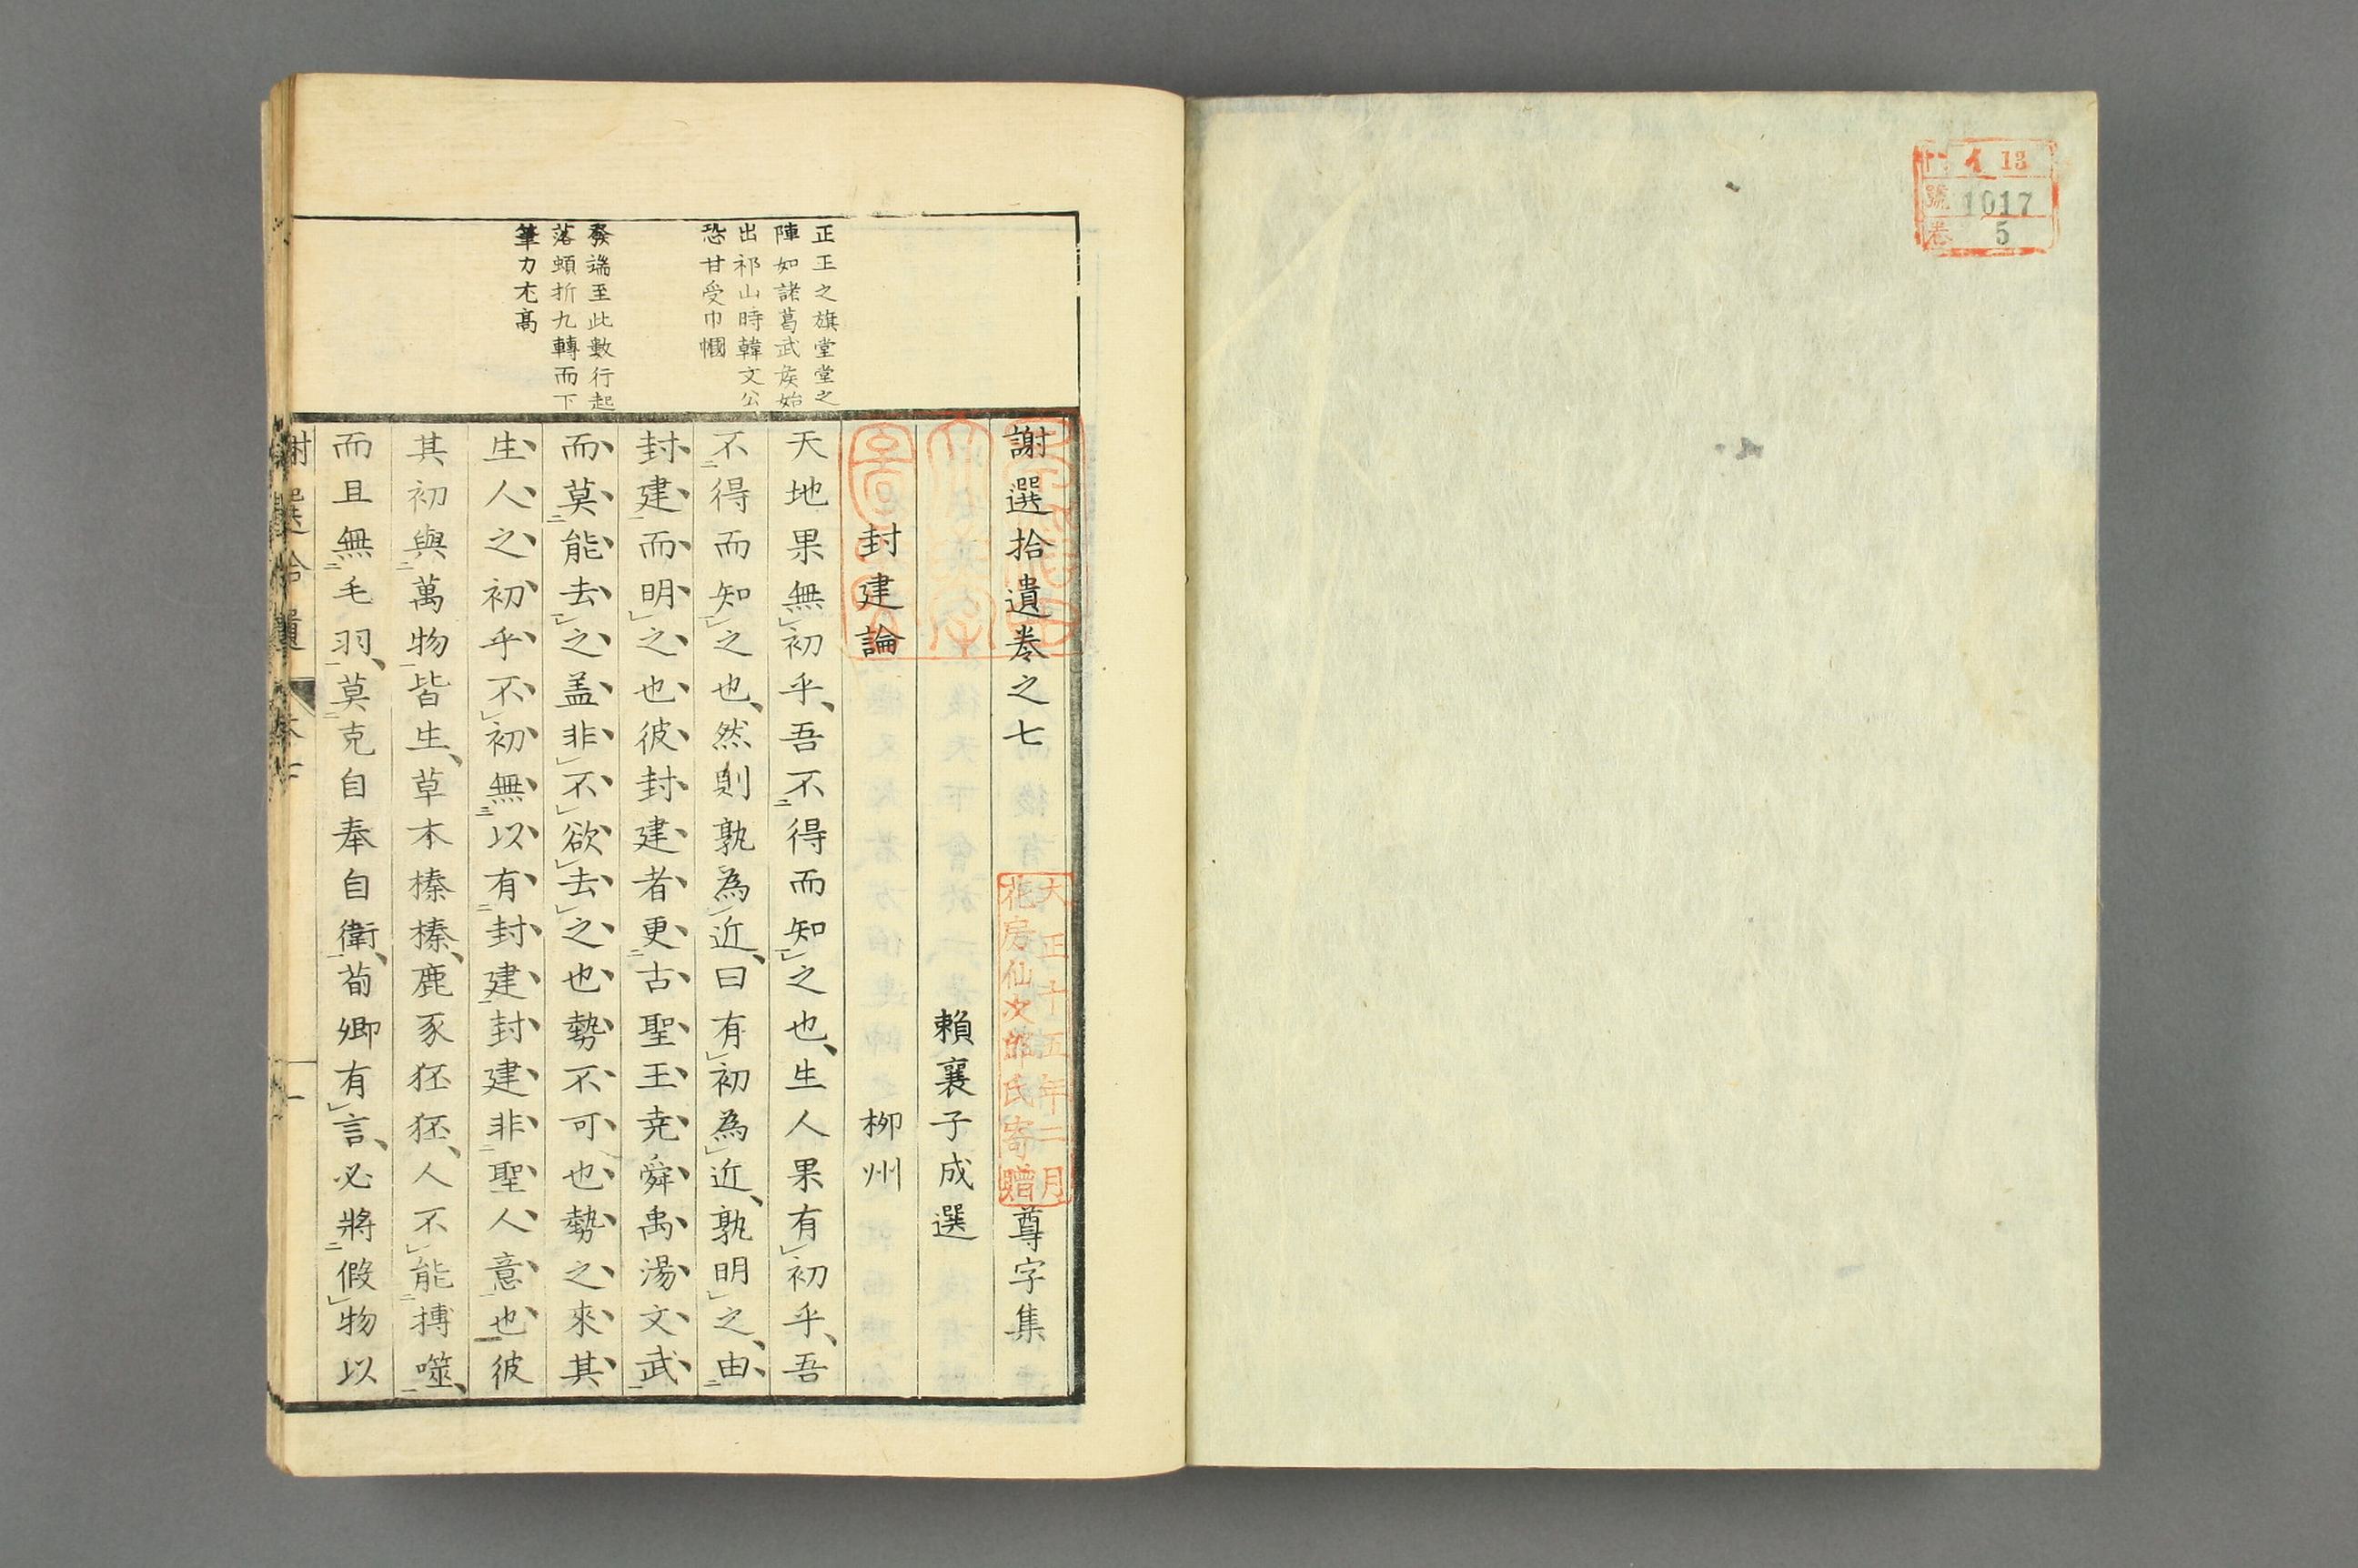 門 イ 13
號 1017
卷 5
正正之旗堂堂之
陣如諸葛武侯始
出祁山時韓文公
恐甘受巾幗
發端至此數行起
落頓折九轉而下
筆力尤高
謝選拾遺卷之七 尊字集
大正十五年二月
花房仙次郎氏寄贈
賴襄子成選
封建論 栁州
天地果無初乎吾不得而知之也生人果有初乎吾
不得而知之也然則孰為近曰有初為近孰明之由
封建而明之也彼封建者更古聖王尭舜禹湯文武
而莫能去之盖非不欲去之也勢不可也勢之來其
生人之初乎不初無以有封建封建非聖人意也彼
其初與萬物皆生草木榛榛鹿豕狉狉人不能搏噬
而且無毛羽莫克自奉自衛荀卿有言必將假物以
謝選拾遺 卷七 一